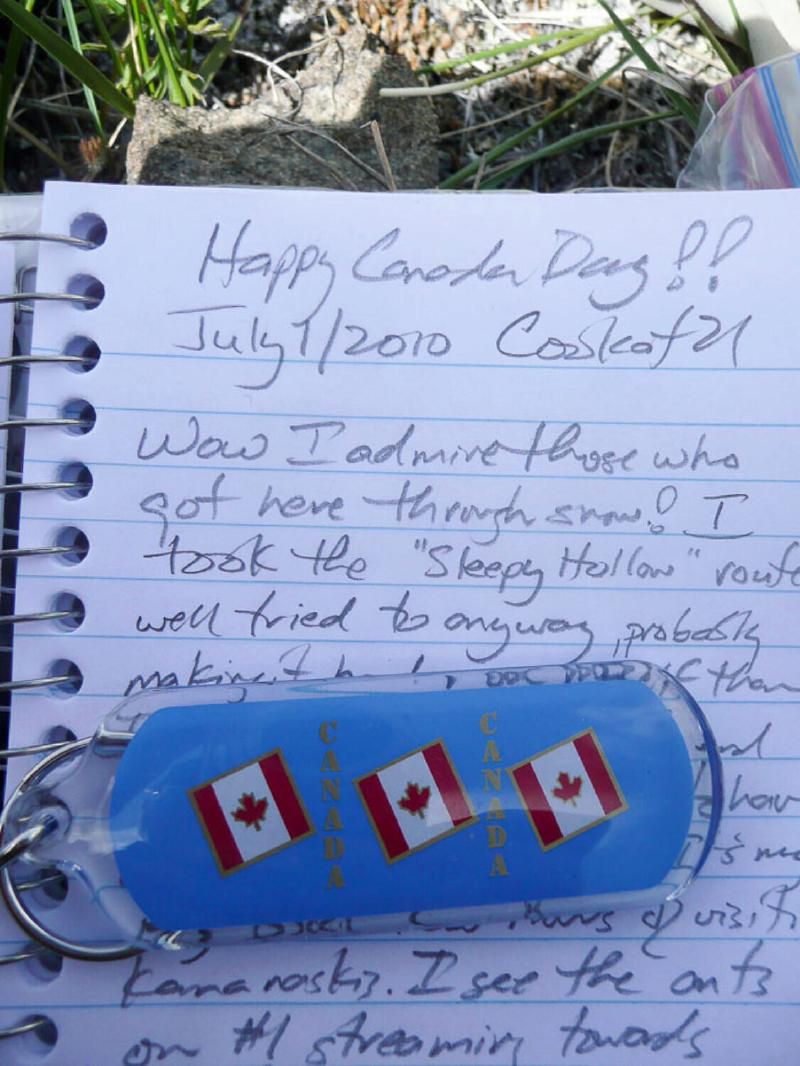 Happy Canada Day!!
July 1/2010
Wow I admire those who
got here through snow! I
took the "Sleepy Hollow" route
well tried to anyway, probably
making it
than
CANADA
CANADA
and
It's
of visit
Kananaskis. I see the ants
on #1 streaming towards